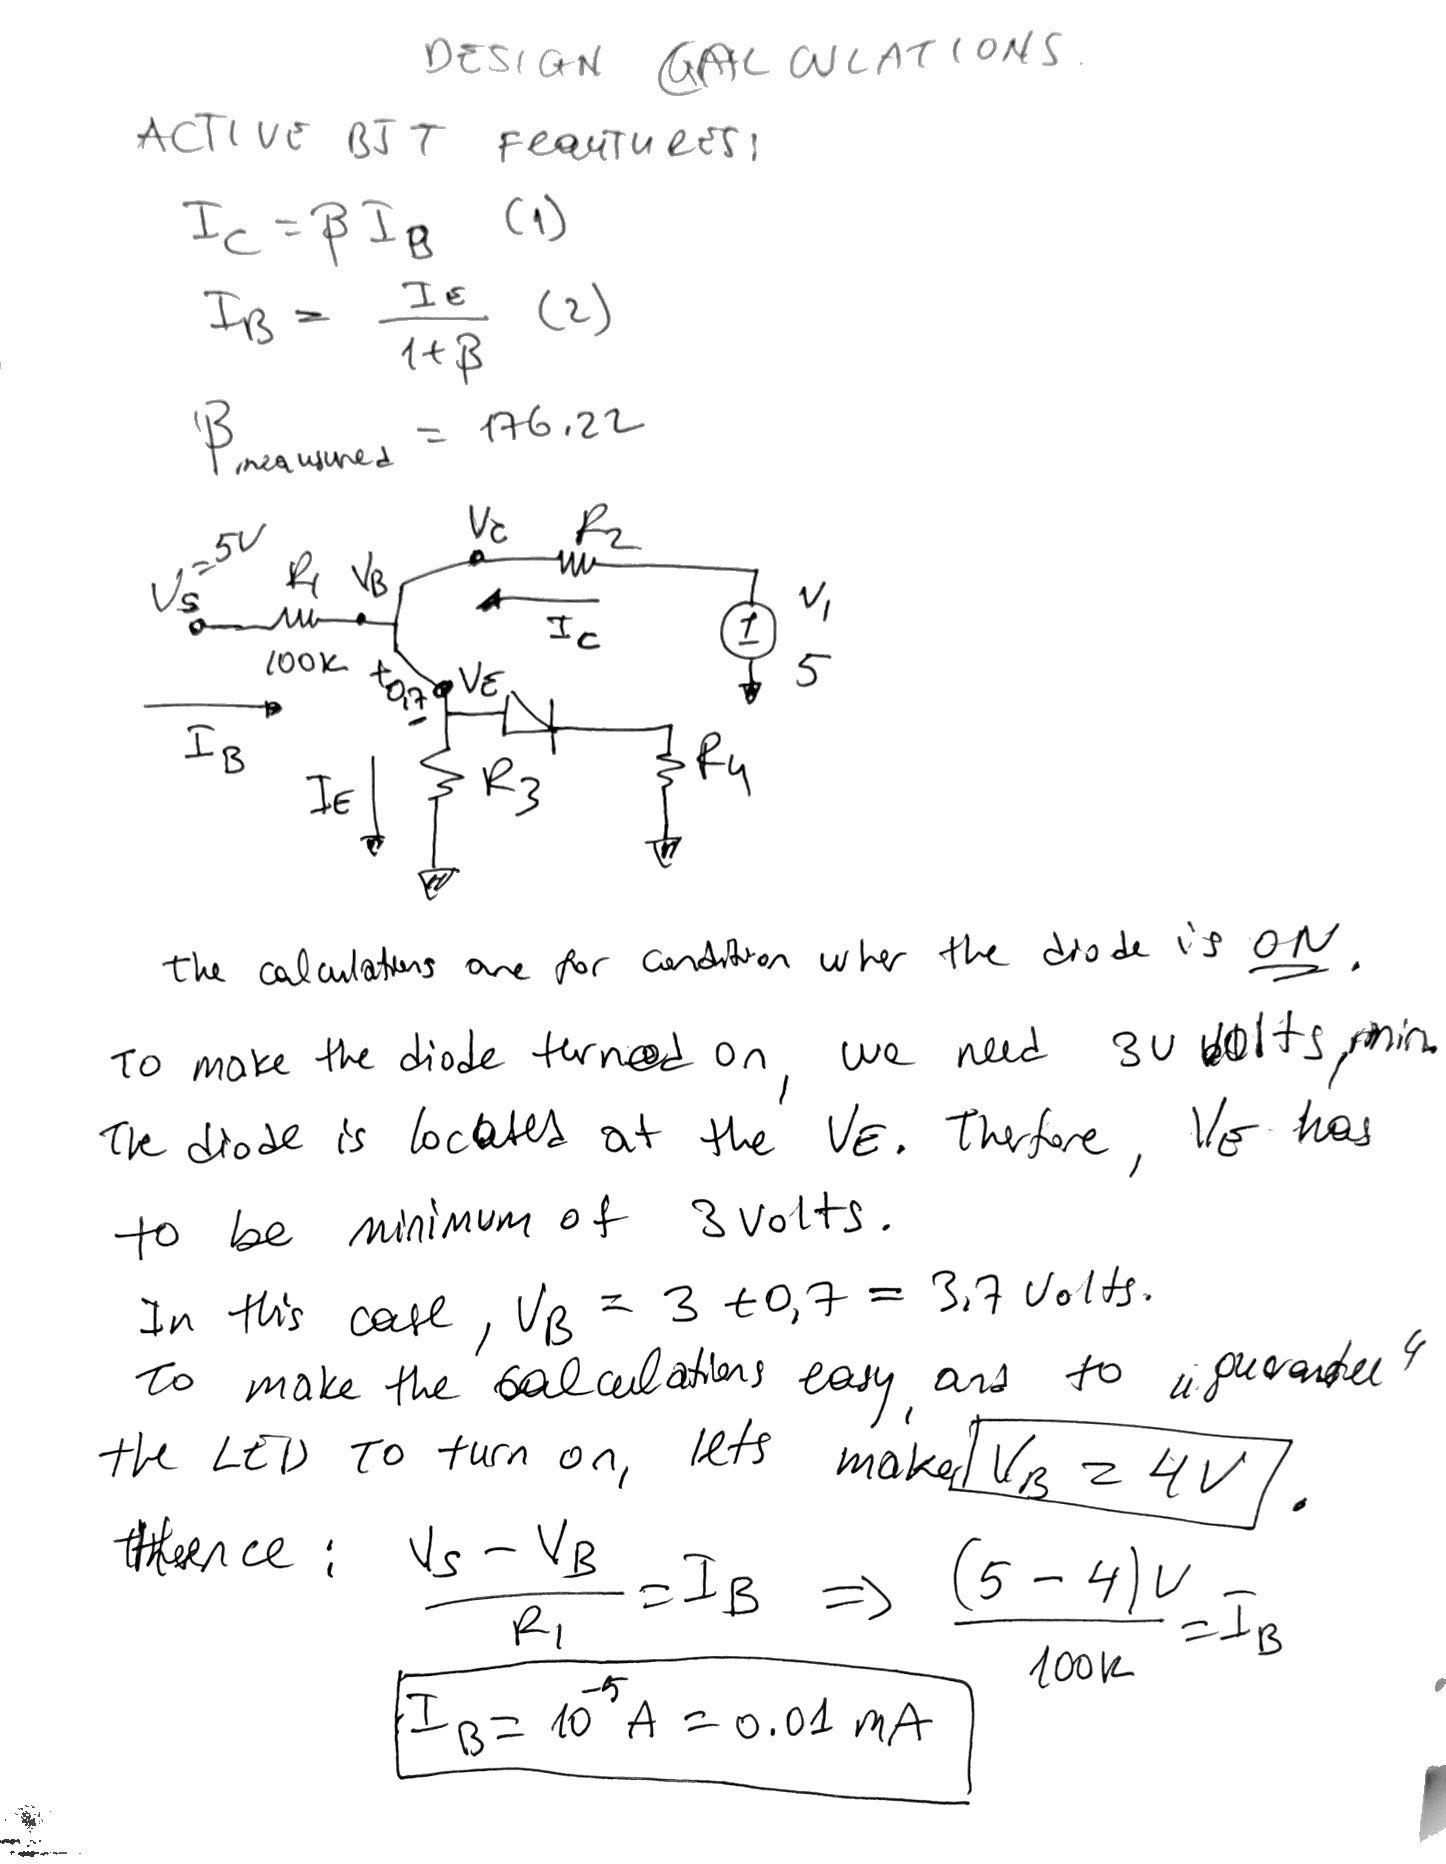 DESIGN CALCULATIONS.
ACTIVE BJT FEAUTURES:
I_C = β I_B (1)
I_B = I_E / 1+β (2)
β measured = 176.22
V_S = 5V R_1 V_B V_C R_2
100k I_C V_1
+0,7 V_E 5
I_B
I_E R_3 R_4
the calculations are for condition when the diode is ON.
To make the diode turned on, we need 3V volts, min.
The diode is located at the VE. Therfore, VE has
to be minimum of 3 volts.
In this case, V_B = 3 + 0,7 = 3,7 Volts.
To make the calculations easy, and to "guarantee"
the LED TO turn on, lets make V_B = 4V.
Hence: V_S - V_B / R_1 = I_B => (5 - 4)V / 100k = I_B
I_B = 10^-5 A = 0.01 mA